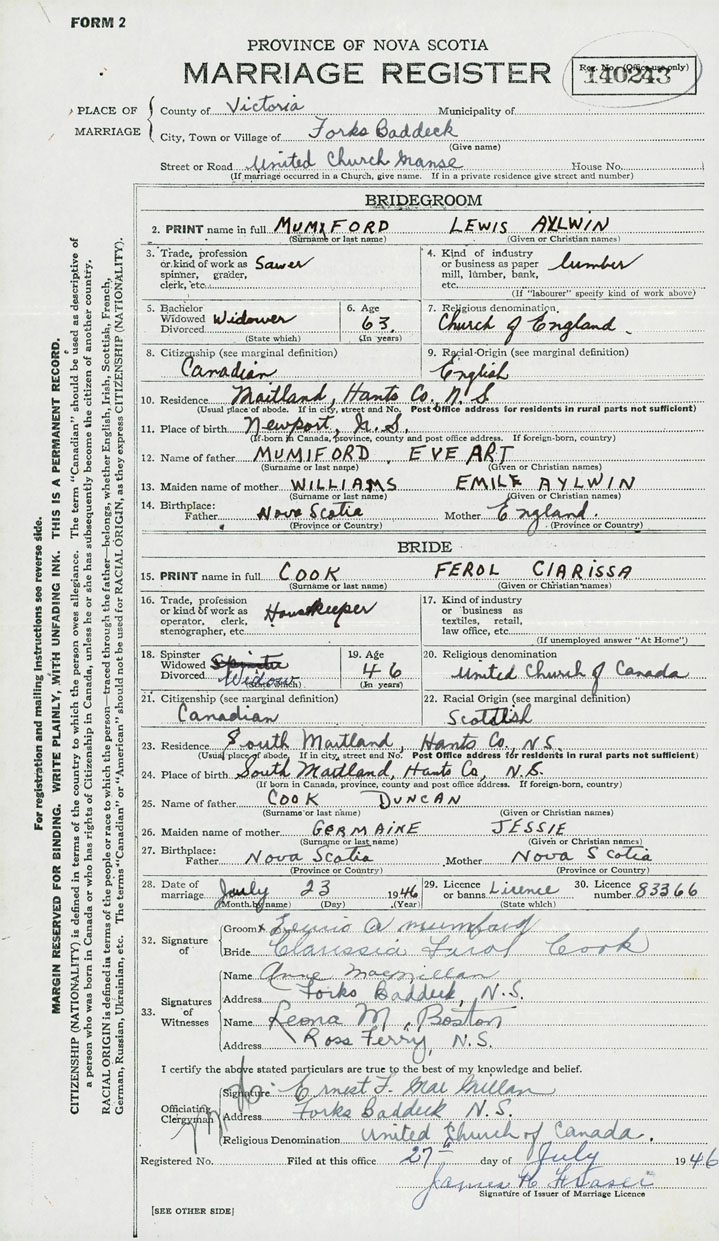 FORM 2
PROVINCE OF NOVA SCOTIA
MARRIAGE REGISTER
Reg. No. (Office use only)
140243
PLACE OF MARRIAGE
County of Victoria Municipality of
City, Town or Village of Forks Baddeck
(Give name)
Street or Road United Church Manse House No.
(If marriage occurred in a Church, give name. If in a private residence give street and number)
BRIDEGROOM
2. PRINT name in full MUMIFORD LEWIS AYLWIN
(Surname or last name) (Given or Christian names)
3. Trade, profession or kind of work as spinner, grader, clerk, etc. Sawer
4. Kind of industry or business as paper mill, lumber, bank, etc. lumber
(If "labourer" specify kind of work above)
5. Bachelor Widowed Divorced Widower
(State which)
6. Age 63
(In years)
7. Religious denomination
Church of England.
8. Citizenship (see marginal definition)
Canadian
9. Racial-Origin (see marginal definition)
English
10. Residence Maitland, Hants Co, N.S
(Usual place of abode. If in city, street and No. Post Office address for residents in rural parts not sufficient)
11. Place of birth Newport, N.S.
(If born in Canada, province, county and post office address. If foreign-born, country)
12. Name of father MUMIFORD, EVE ART
(Surname or last name) (Given or Christian names)
13. Maiden name of mother WILLIAMS EMILE AYLWIN
(Surname or last name) (Given or Christian names)
14. Birthplace: Father Nova Scotia Mother England.
(Province or Country) (Province or Country)
BRIDE
15. PRINT name in full COOK FEROL ClARISSA
(Surname or last name) (Given or Christian names)
16. Trade, profession or kind of work as operator, clerk, stenographer, etc. Housekeeper
17. Kind of industry or business as textiles, retail, law office, etc.
(If unemployed answer "At Home")
18. Spinster Widowed Divorced Spinster Widow
(State which)
19. Age 46
(In years)
20. Religious denomination
United Church of Canada
21. Citizenship (see marginal definition)
Canadian
22. Racial Origin (see marginal definition)
Scottish
23. Residence South Maitland, Hants Co, N.S.
(Usual place of abode. If in city, street and No. Post Office address for residents in rural parts not sufficient)
24. Place of birth South Maitland, Hants Co, N.S.
(If born in Canada, province, county and post office address. If foreign-born, country)
25. Name of father COOK DUNCAN
(Surname or last name) (Given or Christian names)
26. Maiden name of mother GERMAINE JESSIE
(Surname or last name) (Given or Christian names)
27. Birthplace: Father Nova Scotia Mother Nova Scotia
(Province or Country) (Province or Country)
28. Date of marriage July 23 1946
(Month by name) (Day) (Year)
29. Licence or banns Licence
(State which)
30. Licence number 83366
32. Signature of
Groom x Lewis A Mumford
Bride Clarissia Farol Cook
33. Signatures of Witnesses
Name Anne MacMillan
Address Forks Baddeck, N.S.
Name Leona M. Boston
Address Ross Ferry, N.S.
I certify the above stated particulars are true to the best of my knowledge and belief.
Officiating Clergyman
Signature Ernest F. MacMillan
Address Forks Baddeck N.S.
Religious Denomination United Church of Canada.
Registered No. Filed at this office 27th day of July 1946
James H Fraser
Signature of Issuer of Marriage Licence
[SEE OTHER SIDE]
For registration and mailing instructions see reverse side.
MARGIN RESERVED FOR BINDING. WRITE PLAINLY, WITH UNFADING INK. THIS IS A PERMANENT RECORD.
CITIZENSHIP (NATIONALITY) is defined in terms of the country to which the person owes allegiance. The term "Canadian" should be used as descriptive of
a person who was born in Canada or who has rights of Citizenship in Canada, unless he or she has subsequently become the citizen of another country.
RACIAL ORIGIN is defined in terms of the people or race to which the person—traced through the father—belongs, whether English, Irish, Scottish, French,
German, Russian, Ukrainian, etc. The terms "Canadian" or "American" should not be used for RACIAL ORIGIN, as they express CITIZENSHIP (NATIONALITY).